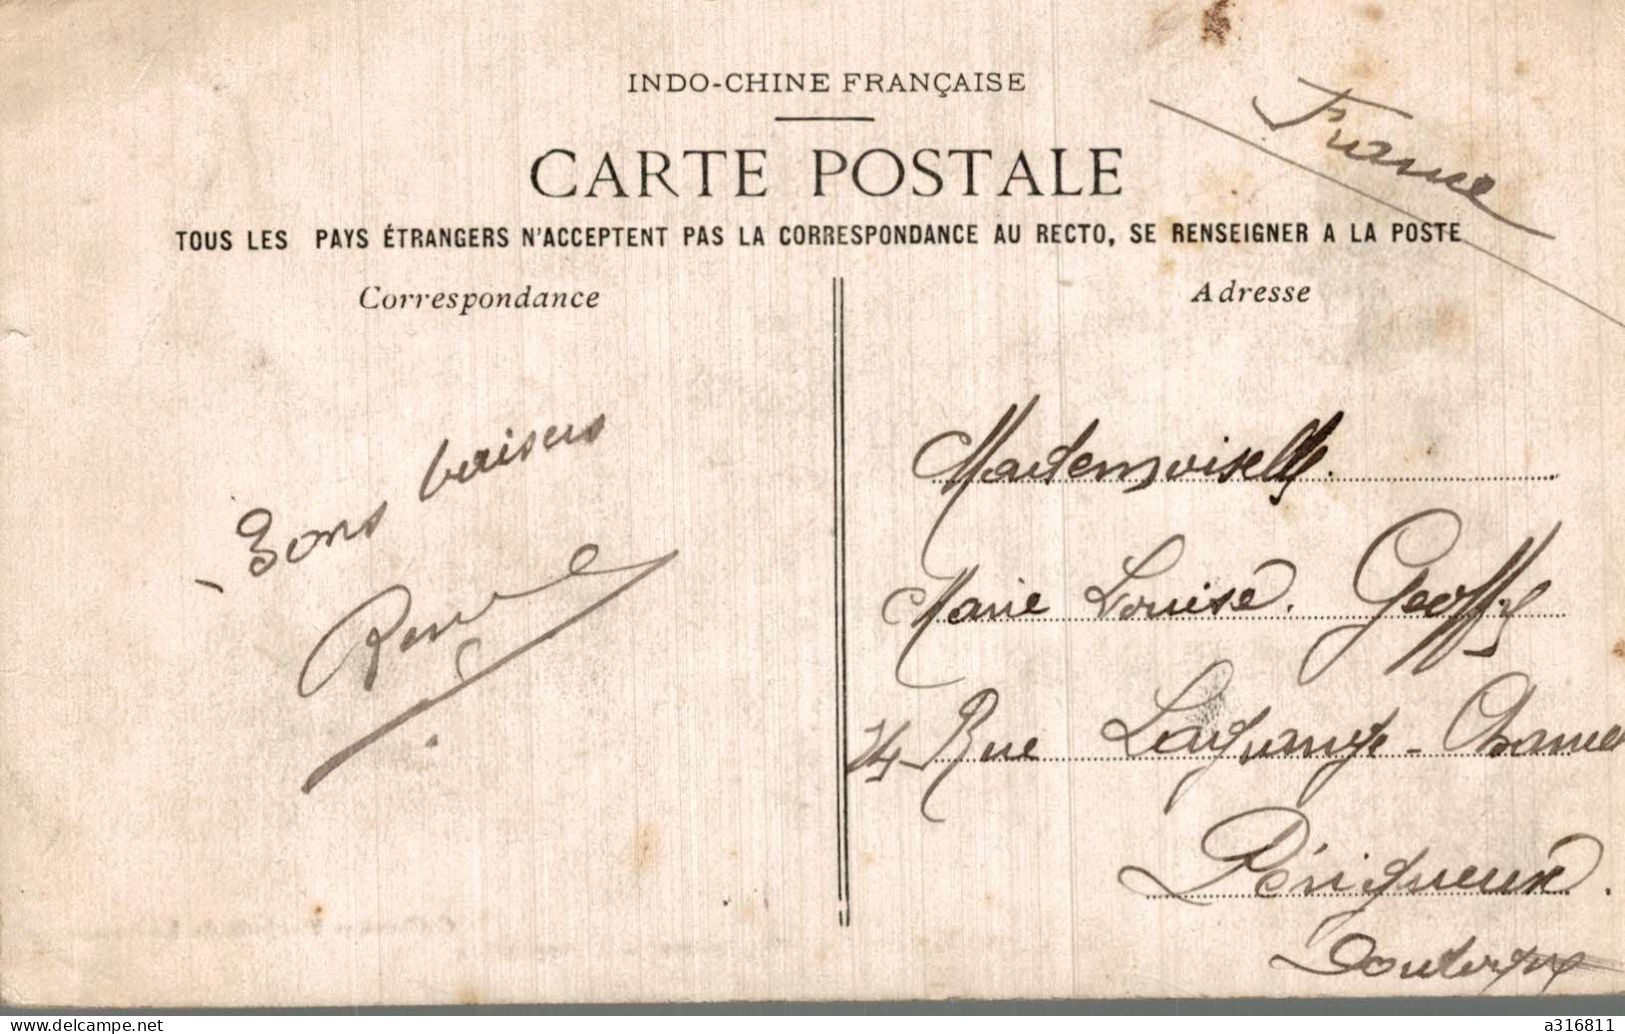 INDO-CHINE FRANÇAISE
France
CARTE POSTALE
TOUS LES PAYS ÉTRANGERS N'ACCEPTENT PAS LA CORRESPONDANCE AU RECTO, SE RENSEIGNER A LA POSTE
Correspondance
Adresse
Bons baisers
René
Mademoiselle
Marie Louise. Geoffy
24 Rue Lagrange-Chancel
Périgueux.
Dordogne
delcampe.net
a316811